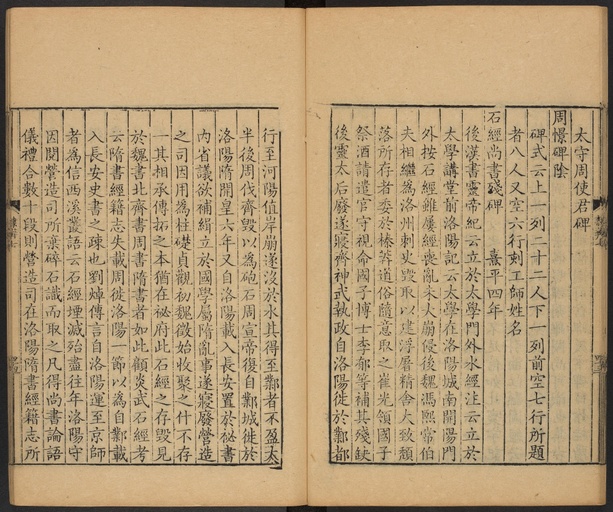 太守周使君碑
周憬碑陰
碑式云上一列二十二人下一列前空七行所題
者八人又空六行刻工師姓名
石經尚書殘碑 熹平四年
後漢書靈帝紀云立於太學門外水經注云立於
太學講堂前洛陽記云太學在洛陽城南開陽門
外按石經雖屢經喪亂未大崩侵後魏馮熙常伯
夫相繼為洛州刺史毀取以建浮屠精舍大致頹
落所存者委於榛莽道俗隨意取之崔光領國子
祭酒請遣官守視命國子博士李郁等補其殘缺
後靈太后廢遂寢齊神武執政自洛陽徙於鄴都
行至河陽值岸崩遂沒於水其得至鄴者不盈太
半後周伐齊毀以為砲石周宣帝復自鄴城徙於
洛陽隋開皇六年又自洛陽載入長安置於祕書
內省議欲補緝立於國學屬隋亂事遂寢廢營造
之司因用為柱礎貞觀初魏徵始收聚之什不存
一其相承傳拓之本猶在秘府此石經之存毀見
於魏書北齊書周書隋書者如此顧炎武石經考
云隋書經籍志失載周徙洛陽一節以為自鄴載
入長安史書之疎也劉焯傳言自洛陽運至京師
者為信西溪叢語云石經堙滅殆盡往年洛陽守
因閱營造司所棄碎石識而取之凡得尚書論語
儀禮合數十段則營造司在洛陽隋書經籍志所